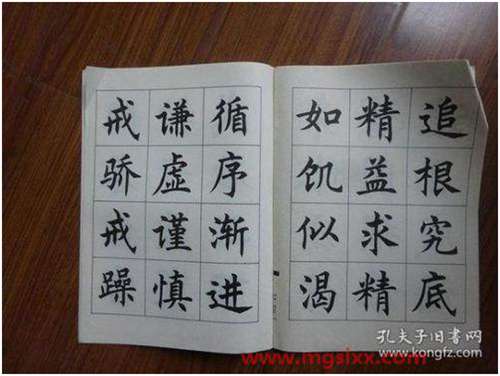 追根究底
精益求精
如饥似渴
循序渐进
谦虚谨慎
戒骄戒躁
孔夫子旧书网
www.kongfz.com
www.mgsixx.com